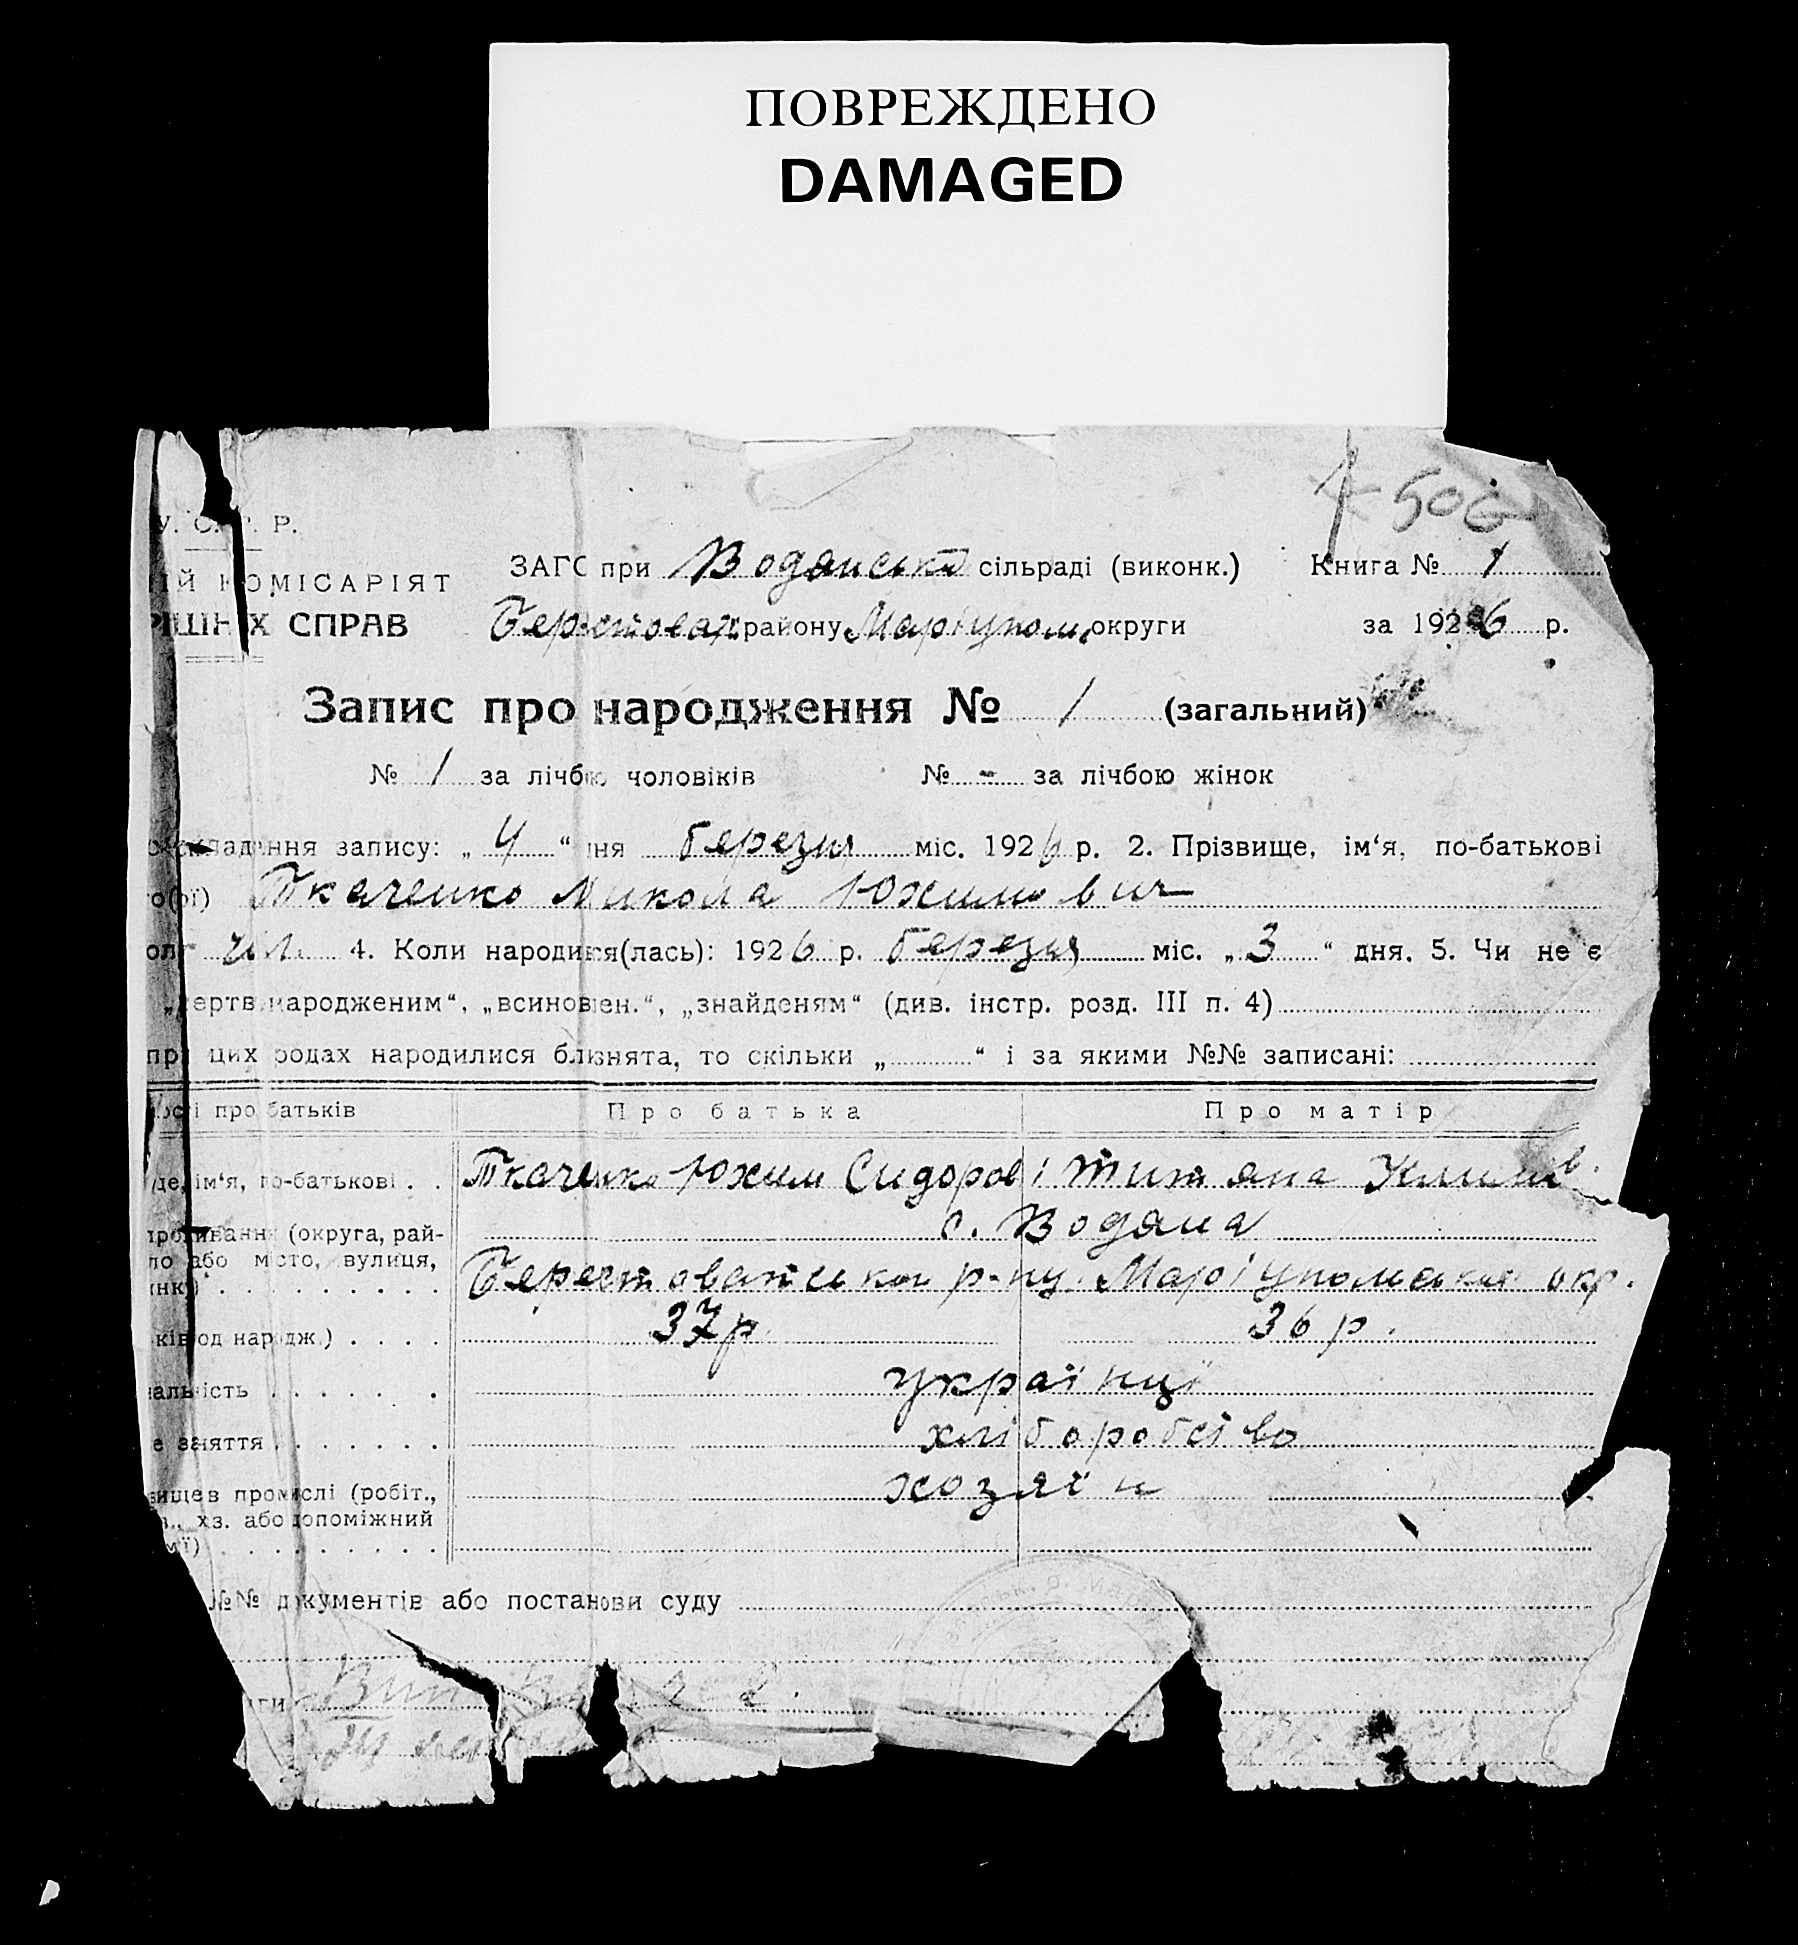 ПОВРЕЖДЕНО
DAMAGED
506
У. С. Р. Р.
ЗАГС при Водянські сільраді (виконк.) Книга № 1
ІЙ КОМІСАРІЯТ
РІШНІХ СПРАВ Берестоват. району Маріупольс округи за 1926 р.
Запис про народження № 1 (загальний)
№ 1 за лічбою чоловіків № - за лічбою жінок
складення запису: „ 4 “ дня березня міс. 1926 р. 2. Прізвище, ім‘я, по-батькові
го(ої) Ткаченко Микола Юхимович
чол. 4. Коли народився(лась): 1926 р. березня міс. „ 3 “ дня. 5. Чи не є
„мертвонародженим“, „всиновлен.“, „знайденям“ (див. інстр. розд. III п. 4)
при цих родах народилися близнята, то скільки „ “ і за якими №№ записані:
ості про батьків Про батька Про матір
ім‘я, по-батькові . . Ткаченко Юхим Сидоров і Титяна Клим
проживання (округа, рай- с. Водяна
ло або місто, вулиця,
инк.) . . . . . . . . . Берестоватської р-ну. Маріупольської окр.
ків од нардж.) . . . . 37 р. 36 р.
нальність . . . . . . . українці
е заняття . . . . . . . хліборобство
вище в промислі (робіт., хозяїн
хз. або допоміжний
м‘ї) . . . . . . . . .
№№ документів або постанови суду
ги